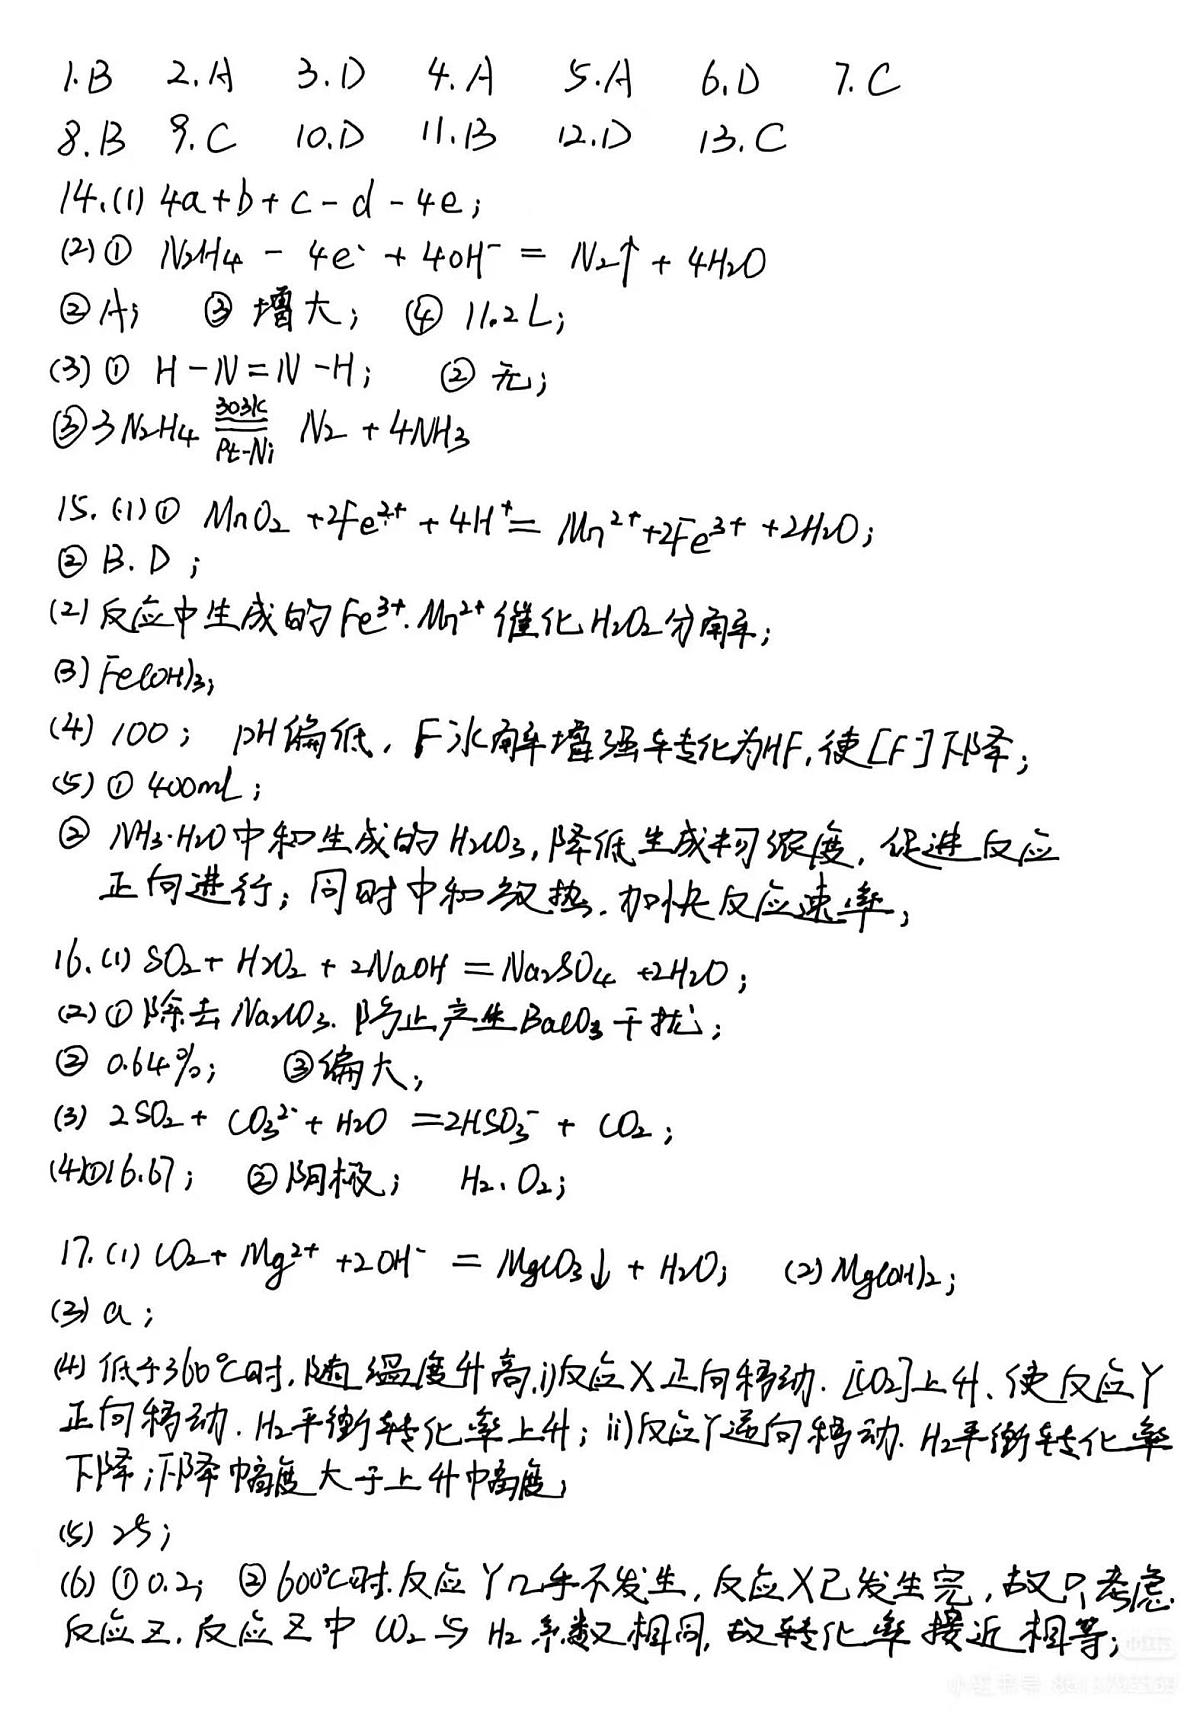 1.B 2.A 3.D 4.A 5.A 6.D 7.C
8.B 9.C 10.D 11.B 12.D 13.C
14.(1) 4a+b+c-d-4e;
(2)① N₂H₄ - 4e⁻ + 4OH⁻ = N₂↑ + 4H₂O
②A; ③增大; ④ 11.2L;
(3)① H-N=N-H; ②无;
③3N₂H₄ =(303K, Pt-Ni)= N₂ + 4NH₃
15.(1)① MnO₂ +2Fe²⁺ + 4H⁺ = Mn²⁺+2Fe³⁺ +2H₂O;
② B.D;
(2)反应中生成的Fe³⁺.Mn²⁺催化H₂O₂分解;
(3) Fe(OH)₃;
(4) 100; pH偏低,F⁻水解增强转化为HF,使[F⁻]下降;
(5)① 400mL;
② NH₃·H₂O中和生成的H₂CO₃,降低生成物浓度,促进反应
正向进行;同时中和放热,加快反应速率;
16.(1) SO₂+ H₂O₂ + 2NaOH = Na₂SO₄ +2H₂O;
(2)①除去Na₂CO₃.防止产生BaCO₃干扰;
② 0.64%; ③偏大;
(3) 2SO₂+ CO₃²⁻+ H₂O =2HSO₃⁻ + CO₂;
(4)①16.67; ②阴极; H₂、O₂;
17.(1) CO₂+ Mg²⁺ +2OH⁻ = MgCO₃↓ + H₂O; (2) Mg(OH)₂;
(3) a;
(4) 低于360℃时,随温度升高,i)反应X正向移动.[CO₂]上升、使反应Y
正向移动.H₂平衡转化率上升;ii)反应Y逆向移动.H₂平衡转化率
下降;下降幅度大于上升幅度;
(5) 25;
(6) ①0.2; ②600℃时.反应Y几乎不发生,反应X已发生完,故只考虑
反应Z.反应Z中CO₂与H₂系数相同,故转化率接近相等;
小红书